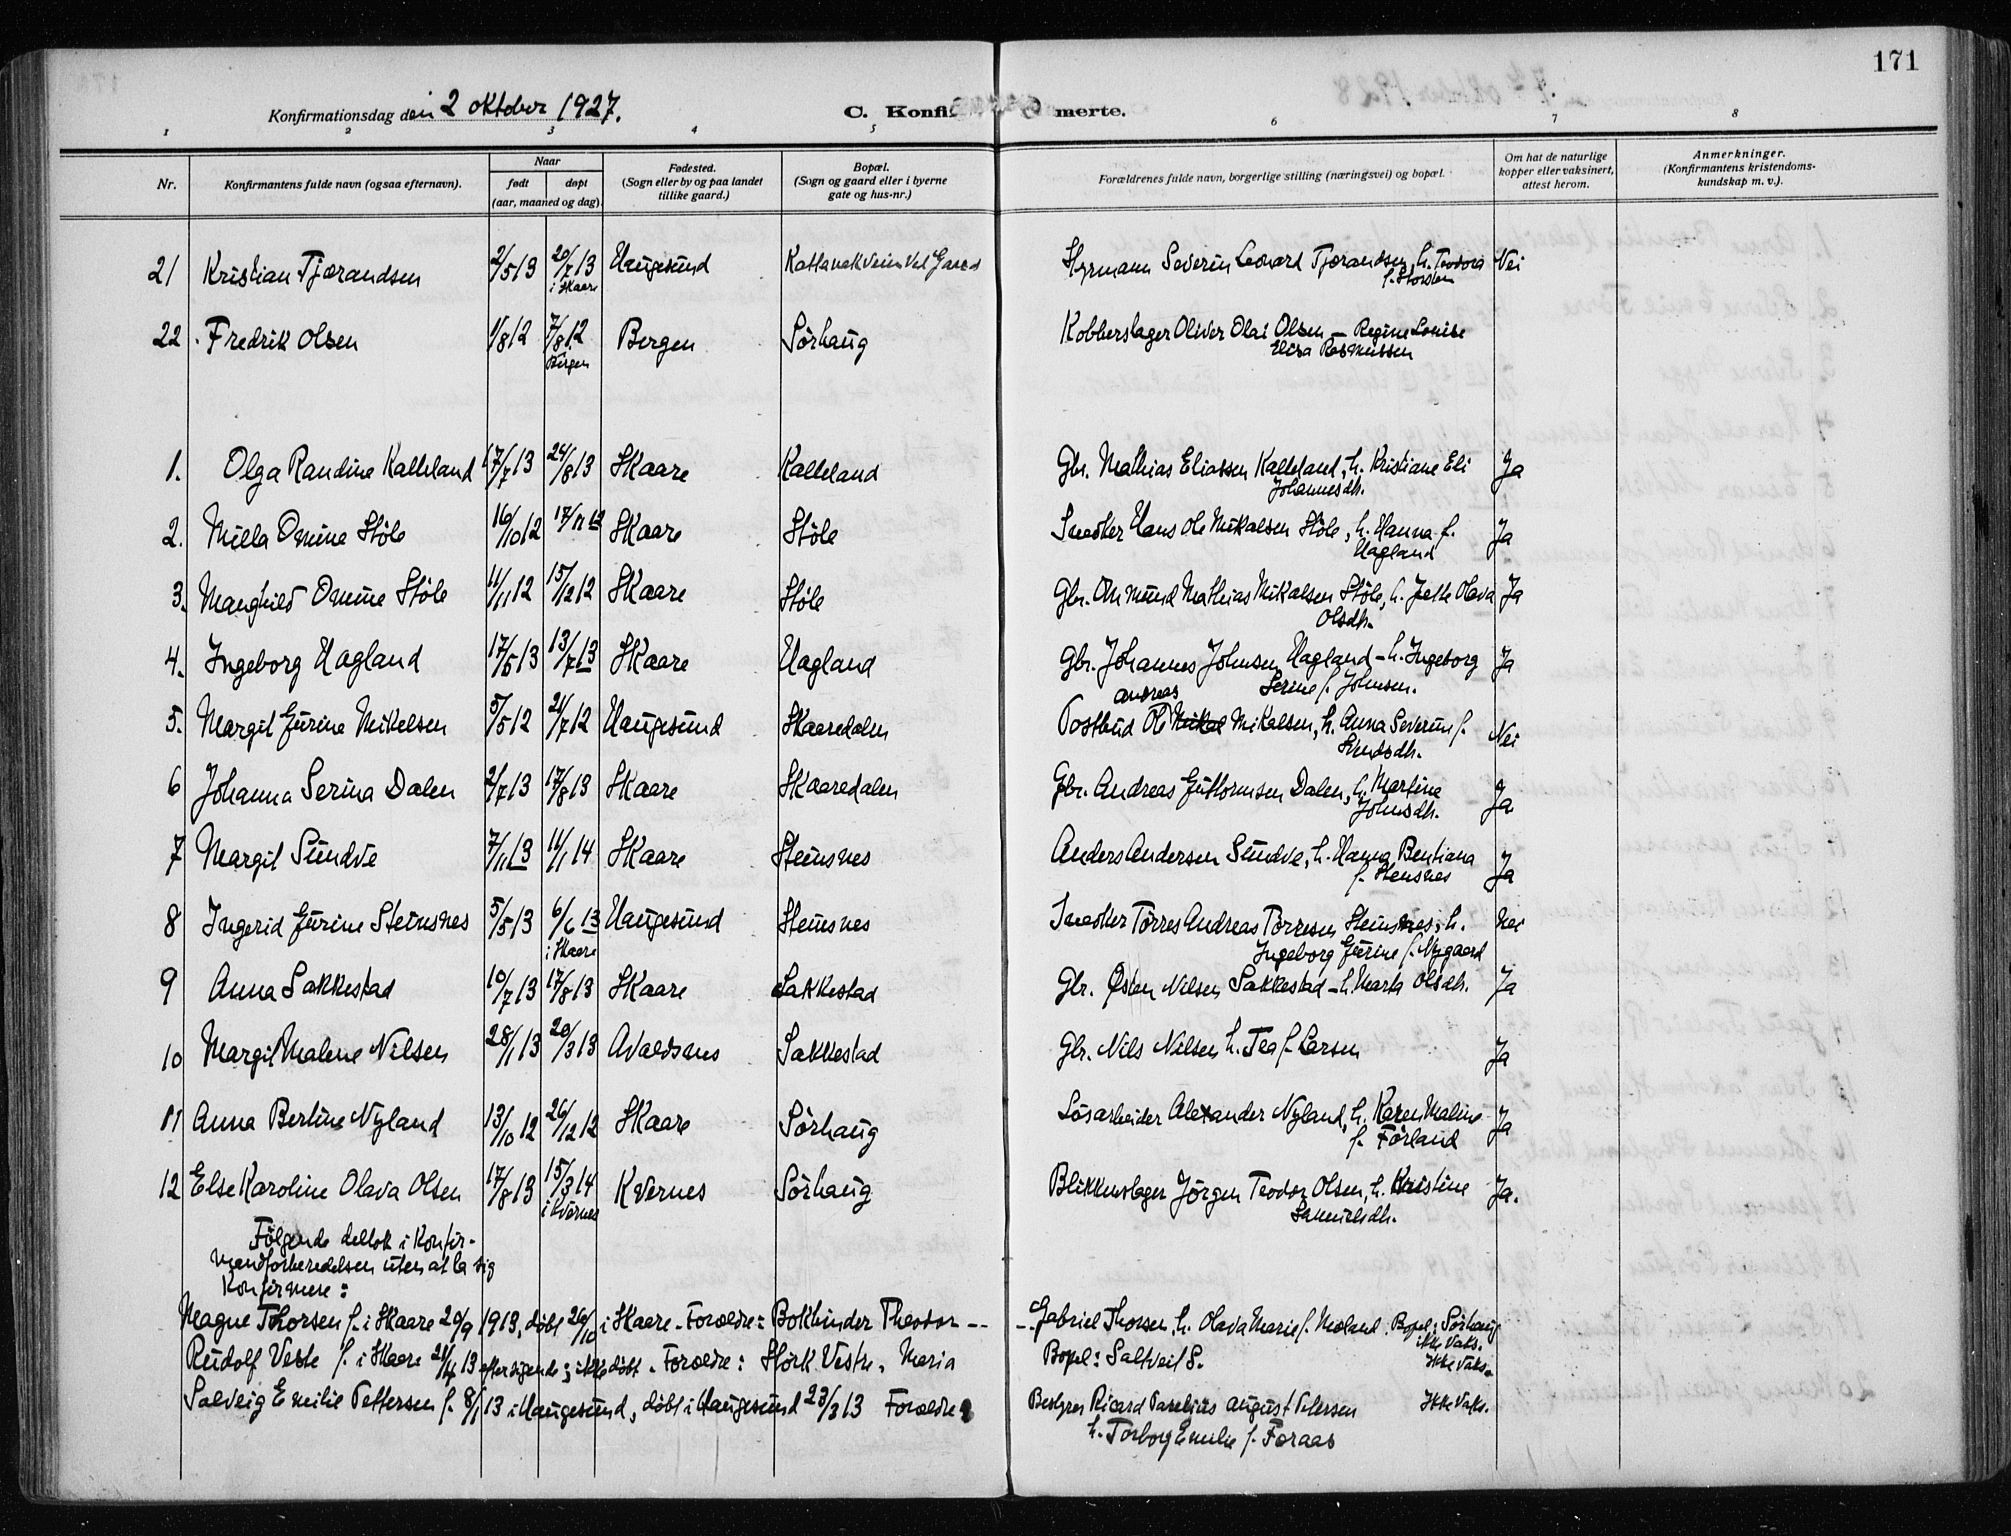 171
Konfirmationsdag den 2 oktober 1927.
C. Konfi merte.
1 2 3 4 5 6 7 8
Nr.
Konfirmantens fulde navn (ogsaa efternavn).
Naar
født døpt
(aar, maaned og dag).
Fødested.
(Sogn eller by og paa landet
tillike gaard.)
Bopæl.
(Sogn og gaard eller i byerne
gate og hus-nr.)
Forældrenes fulde navn, borgerlige stilling (næringsvei) og bopæl.
Om hat de naturlige
kopper eller vaksinert,
attest herom.
Anmerkninger.
(Konfirmantens kristendoms-
kundskap m. v.).
21 Kristian Tjærandsen 2/5 13 20/7 13 Haugesund Severin Leonard Tjærandsen, h. Teodora Nei
i Skaare
22 Fredrik Olsen 1/8 12 7/8 12 Bergen Sörhaug Kobberslager Oliver Olai Olsen – Regine Louise
Bergen Elisa Rasmussen
1. Olga Randine Kalleland 17/7 13 24/8 13 Skaare Kalleland Gbr. Mathias Eliassen Kalleland, h. Kristiane Eli Ja
Johannesdh.
2. Milla Omine Stöle 16/10 12 17/11 12 Skaare Stöle Snedker Hans Ole Mikalsen Stöle, h. Hanna f. Ja
Hagland
3. Manghild Omine Stöle 11/11 12 15/12 12 Skaare Stöle Gbr. Mathias Mikalsen Stöle, h. Jette Olava Ja
Olsdh.
4. Ingeborg Hagland 17/5 13 13/7 13 Skaare Hagland Gbr. Johannes Johnsen Hagland – h. Ingeborg Ja
Serine f. Johnsen.
Andreas
5. Margit Gurine Mikelsen 5/5 12 21/7 12 Haugesund Skaaredalen Postbud Ole Mikalsen, h. Anna Severine f. Nei
6 Johanna Serina Dalen 2/7 13 17/8 13 Skaare Skaaredalen Gbr. Andreas Guttormsen Dalen, h. Martine Ja
Johnsdh.
7 Margit Sundve 7/11 13 11/1 14 Skaare Steinsnes Anders Andersen Sundve, h. Hanna Bentiana Ja
f. Stensnes
8 Ingerid Gurine Steinsnes 5/5 13 6/6 13 Haugesund Steinsnes Snedker Törres Andreas Törresen Steinsnes, h. Nei
i Skaare Ingeborg Gurine f. Nygaard
9 Anna Sakkestad 10/7 13 17/8 13 Skaare Sakkestad Gbr. Østen Nilsen Sakkestad – h. Marta Olsdh. Ja
10 Margit Malene Nilsen 28/1 13 20/3 13 Avaldsnes Sakkestad Gbr. Nils Nilsen h. Tea f. Larsen Ja
11 Anna Bertine Nyland 13/10 12 26/12 12 Skaare Sörhaug Lösarbeider Alexander Nyland, h. Karen Maline Ja
f. Förland
12 Else Karoline Olava Olsen 17/8 13 15/3 14 Kvernes Sörhaug Blikkenslager Jörgen Teodor Olsen, h. Kristine Ja.
i Kvernes Samuelsdh.
Fölgende deltok i Konfir-
mandforberedelsen uten at la sig
Konfirmere:
Magne Thorsen f. i Skaare 20/9 1913, döbt 26/10 i Skaare – Foreldre: Bokbinder Theodor –– Gabriel Thorsen, h. Olava Marie f. Meland. Bopel: Sörhaug
ikke Vaks.
Rudolf f. i Skaare 21/4 13 eftersigende; ikke döbt. Foreldre: Störk Vestre, Maria Bopel: Saltveit S. Ikke Vaks.
Solveig Emilie Pettersen f. 8/1 13 i Haugesund, döbt i Haugesund 23/3 13 Foreldre: Bestyrer Ricard August Petersen Ikke Vaks.
h. Torborg Emilie f. Foraas